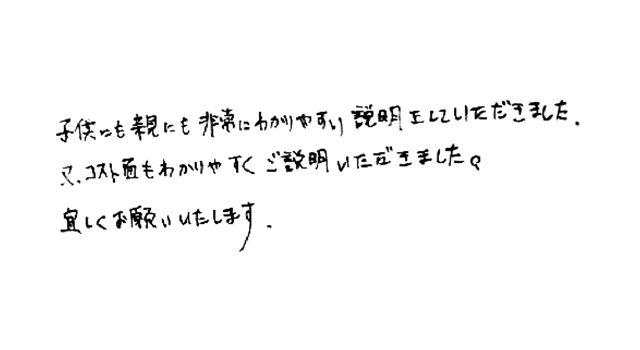 子供にも親にも非常にわかりやすい説明をしていただきました.
又、コスト面もわかりやすくご説明いただきました。
宜しくお願いいたします.